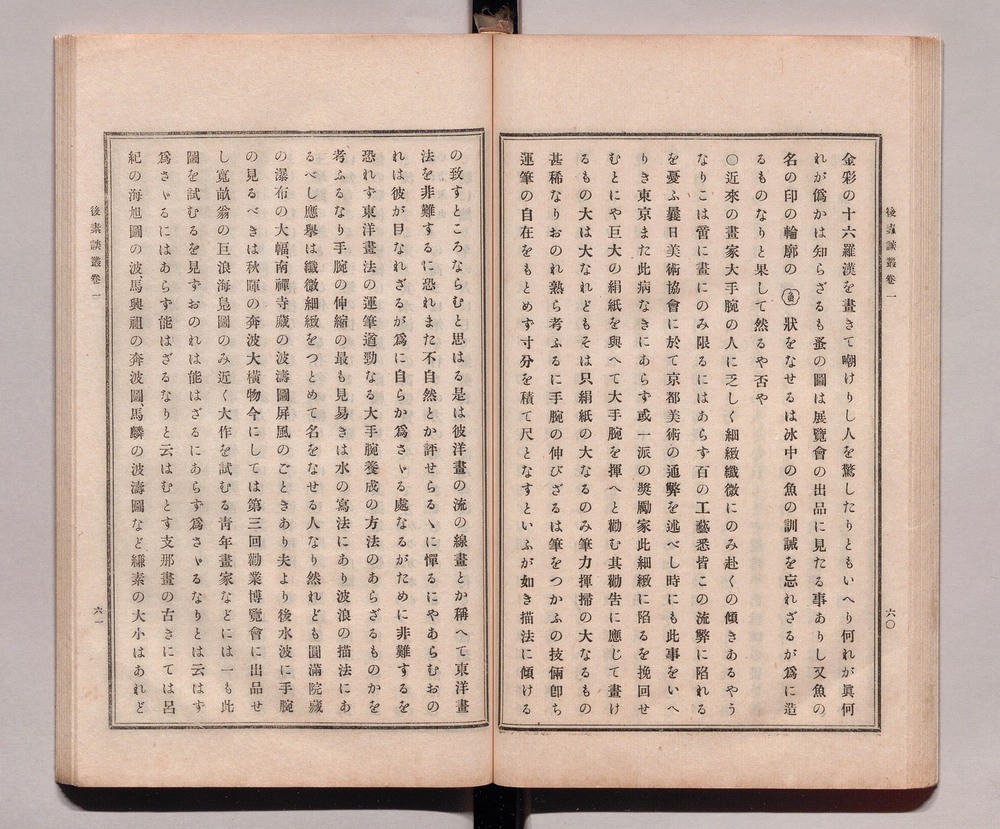 後素談叢卷一
六〇
金彩の十六羅漢を畫きて嘲けりし人を驚したりともいへり何れが眞何
れが僞かは知らざるも蚤の圖は展覽會の出品に見たる事ありし又魚の
名の印の輪廓の 狀をなせるは冰中の魚の訓誡を忘れざるが爲に造
るものなりと果して然るや否や
○近來の畫家大手腕の人に乏しく細緻纎微にのみ赴くの傾きあるやう
なりこは啻に畫にのみ限るにはあらす百の工藝悉皆この流弊に陷れる
を憂ふ曩日美術協會に於て京都美術の通弊を述べし時にも此事をいへ
りき東京また此病なきにあらす或一派の奬勵家此細緻に陷るを挽回せ
むとにや巨大の絹紙を與へて大手腕を揮へと勸む其勸告に應じて畫け
るもの大は大なれどもそは只絹紙の大なるのみ筆力揮掃の大なるもの
甚稀なりおのれ熟ら考ふるに手腕の伸びざるは筆をつかふの技倆卽ち
運筆の自在をもとめす寸分を積て尺となすといふが如き描法に傾ける
の致すところならむと思はる是は彼洋畫の流の線畫とか稱へて東洋畫
法を非難するに恐れまた不自然とか評せらるゝに憚るにやあらむおの
れは彼が目なれざるが爲に自らか爲さゝる處なるがために非難するを
恐れす東洋畫法の運筆遒勁なる大手腕養成の方法のあらざるものかを
考ふるなり手腕の伸縮の最も見易きは水の寫法にあり波浪の描法にあ
るべし應擧は纎微細緻をつとめて名をなせる人なり然れども圓滿院藏
の瀑布の大幅、南禪寺藏の波濤圖屏風のごときあり夫より後水波に手腕
の見るべきは秋暉の奔波大橫物今にしては第三回勸業博覽會に出品せ
し寬畝翁の巨浪海鳧圖のみ近く大作を試むる靑年畫家などには一も此
圖を試むるを見すおのれは能はざるにあらす爲さゝるなりとは云はす
爲さゝるにはあらす能はざるなりと云はむとす支那畫の古きにては呂
紀の海旭圖の波、馬興祖の奔波圖、馬麟の波濤圖など縑素の大小はあれど
後素談叢卷一
六一